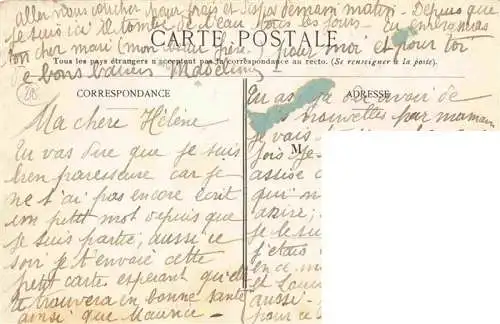 aller nous coucher pour frais et dispos demain matin. Depuis que
je suis ici il tombe de l'eau tous les jours. Tu embrasseras
ton cher mari (mon beau frère) pour moi et pour toi
CARTE POSTALE
Tous les pays étrangers n'acceptent pas la correspondance au recto. (Se renseigner à la poste).
je bons baisers Madeleine
CORRESPONDANCE
Ma chère Hélène
Tu vas dire que je suis
bien paresseuse car je
ne t'ai pas encore écrit
un petit mot depuis que
je suis partie; aussi ce
soir je t'envoie cette
petite carte espérant qu'elle
te trouvera en bonne santé
ainsi que Maurice.
ADRESSE
Tu as dû avoir de
nouvelles par maman
je vais
M
fois je
assise
qui
je le sui
j'étais
en
et Loui
aussi.
pour